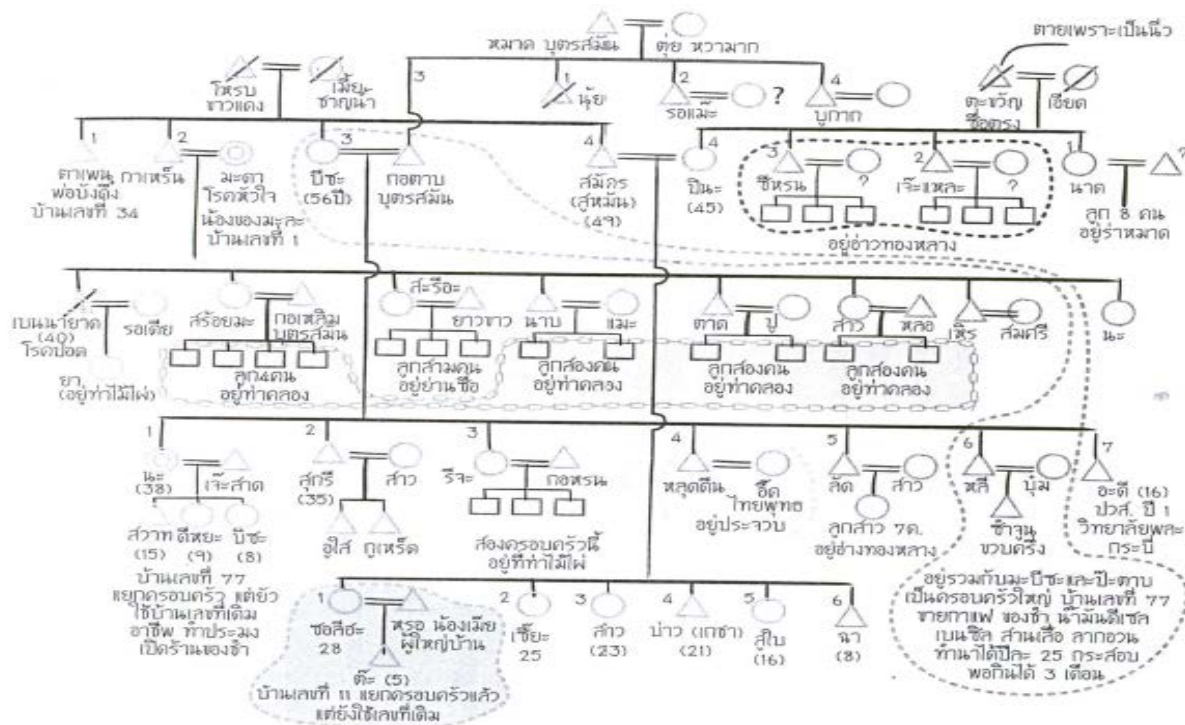 ตายเพราะเป็นนิ่ว
หมาด บุตรสมัน
ตุ่ย หวามาก
โหรบ
ขาวแดง
เมี้ยะ
ชาญน้ำ
3
1
นุ้ย
2
รอแม๊ะ
?
4
บูกาก
ตะขวัญ
ซื่อตรง
เอียด
1
ตาเพน
พ่อบังดึง
บ้านเลขที่ 34
2
กาเหร็น
มะดา
โรคหัวใจ
น้องของมะละ
บ้านเลขที่ 1
3
บีซะ
(56ปี)
กอตาบ
บุตรสมัน
4
สมัคร
(สู่หมัน)
(49)
4
ปีนะ
(45)
3
ซีหรน
?
2
เจ๊ะแหละ
?
อยู่อ่าวทองหลาง
1
นาด
?
ลูก 8 คน
อยู่ร่าหมาด
เบนนายาด
(40)
โรคปอด
รอเตีย
ยา
(อยู่ท่าไม้ไผ่)
สร้อยมะ
กอเหลิม
บุตรสมัน
ลูก4คน
อยู่ท่าคลอง
สะรือะ
ยาวขาว
ลูกสามคน
อยู่ย่านซื่อ
นาบ
แมะ
ลูกสองคน
อยู่ท่าคลอง
ตาด
ปู
ลูกสองคน
อยู่ท่าคลอง
สาว
หลอ
ลูกสองคน
อยู่ท่าคลอง
เหิร
สมศรี
นะ
1
นะ
(38)
เจ๊ะสาด
สวาท
(15)
ดีหยะ
(9)
บีซะ
(8)
บ้านเลขที่ 77
แยกครอบครัว แต่ยัง
ใช้บ้านเลขที่เดิม
อาชีพ ทำประมง
เปิดร้านของชำ
2
สุกรี
(35)
สาว
อูใส
กูเหร็ด
3
รีจะ
กอหรน
สองครอบครัวนี้
อยู่ที่ท่าไม้ไผ่
4
หลุดดีน
อี๊ด
ไทยพุทธ
อยู่ประจวบ
5
ลัด
สาว
ลูกสาว 7ด.
อยู่อ่างทองหลาง
6
หลี
บุ๋ม
ซำจูน
ขวบครึ่ง
7
อะดี (16)
ปวส. ปี 1
วิทยาลัยพละ
กระบี่
อยู่รวมกับมะบีซะและป๊ะตาบ
เป็นครอบครัวใหญ่ บ้านเลขที่ 77
ขายกาแฟ ของชำ น้ำมันดีเซล
เบนซิล สานเสื่อ ลากอวน
ทำนาได้ปีละ 25 กระสอบ
พอกินได้ 3 เดือน
1
ซอลีฮะ
28
หรอ น้องเมีย
ผู้ใหญ่บ้าน
ต๊ะ (5)
บ้านเลขที่ 11 แยกครอบครัวแล้ว
แต่ยังใช้เลขที่เดิม
2
เซี๊ยะ
25
3
สาว
(23)
4
บ่าว (เกชา)
(21)
5
สู่ใบ
(16)
6
ฉา
(8)